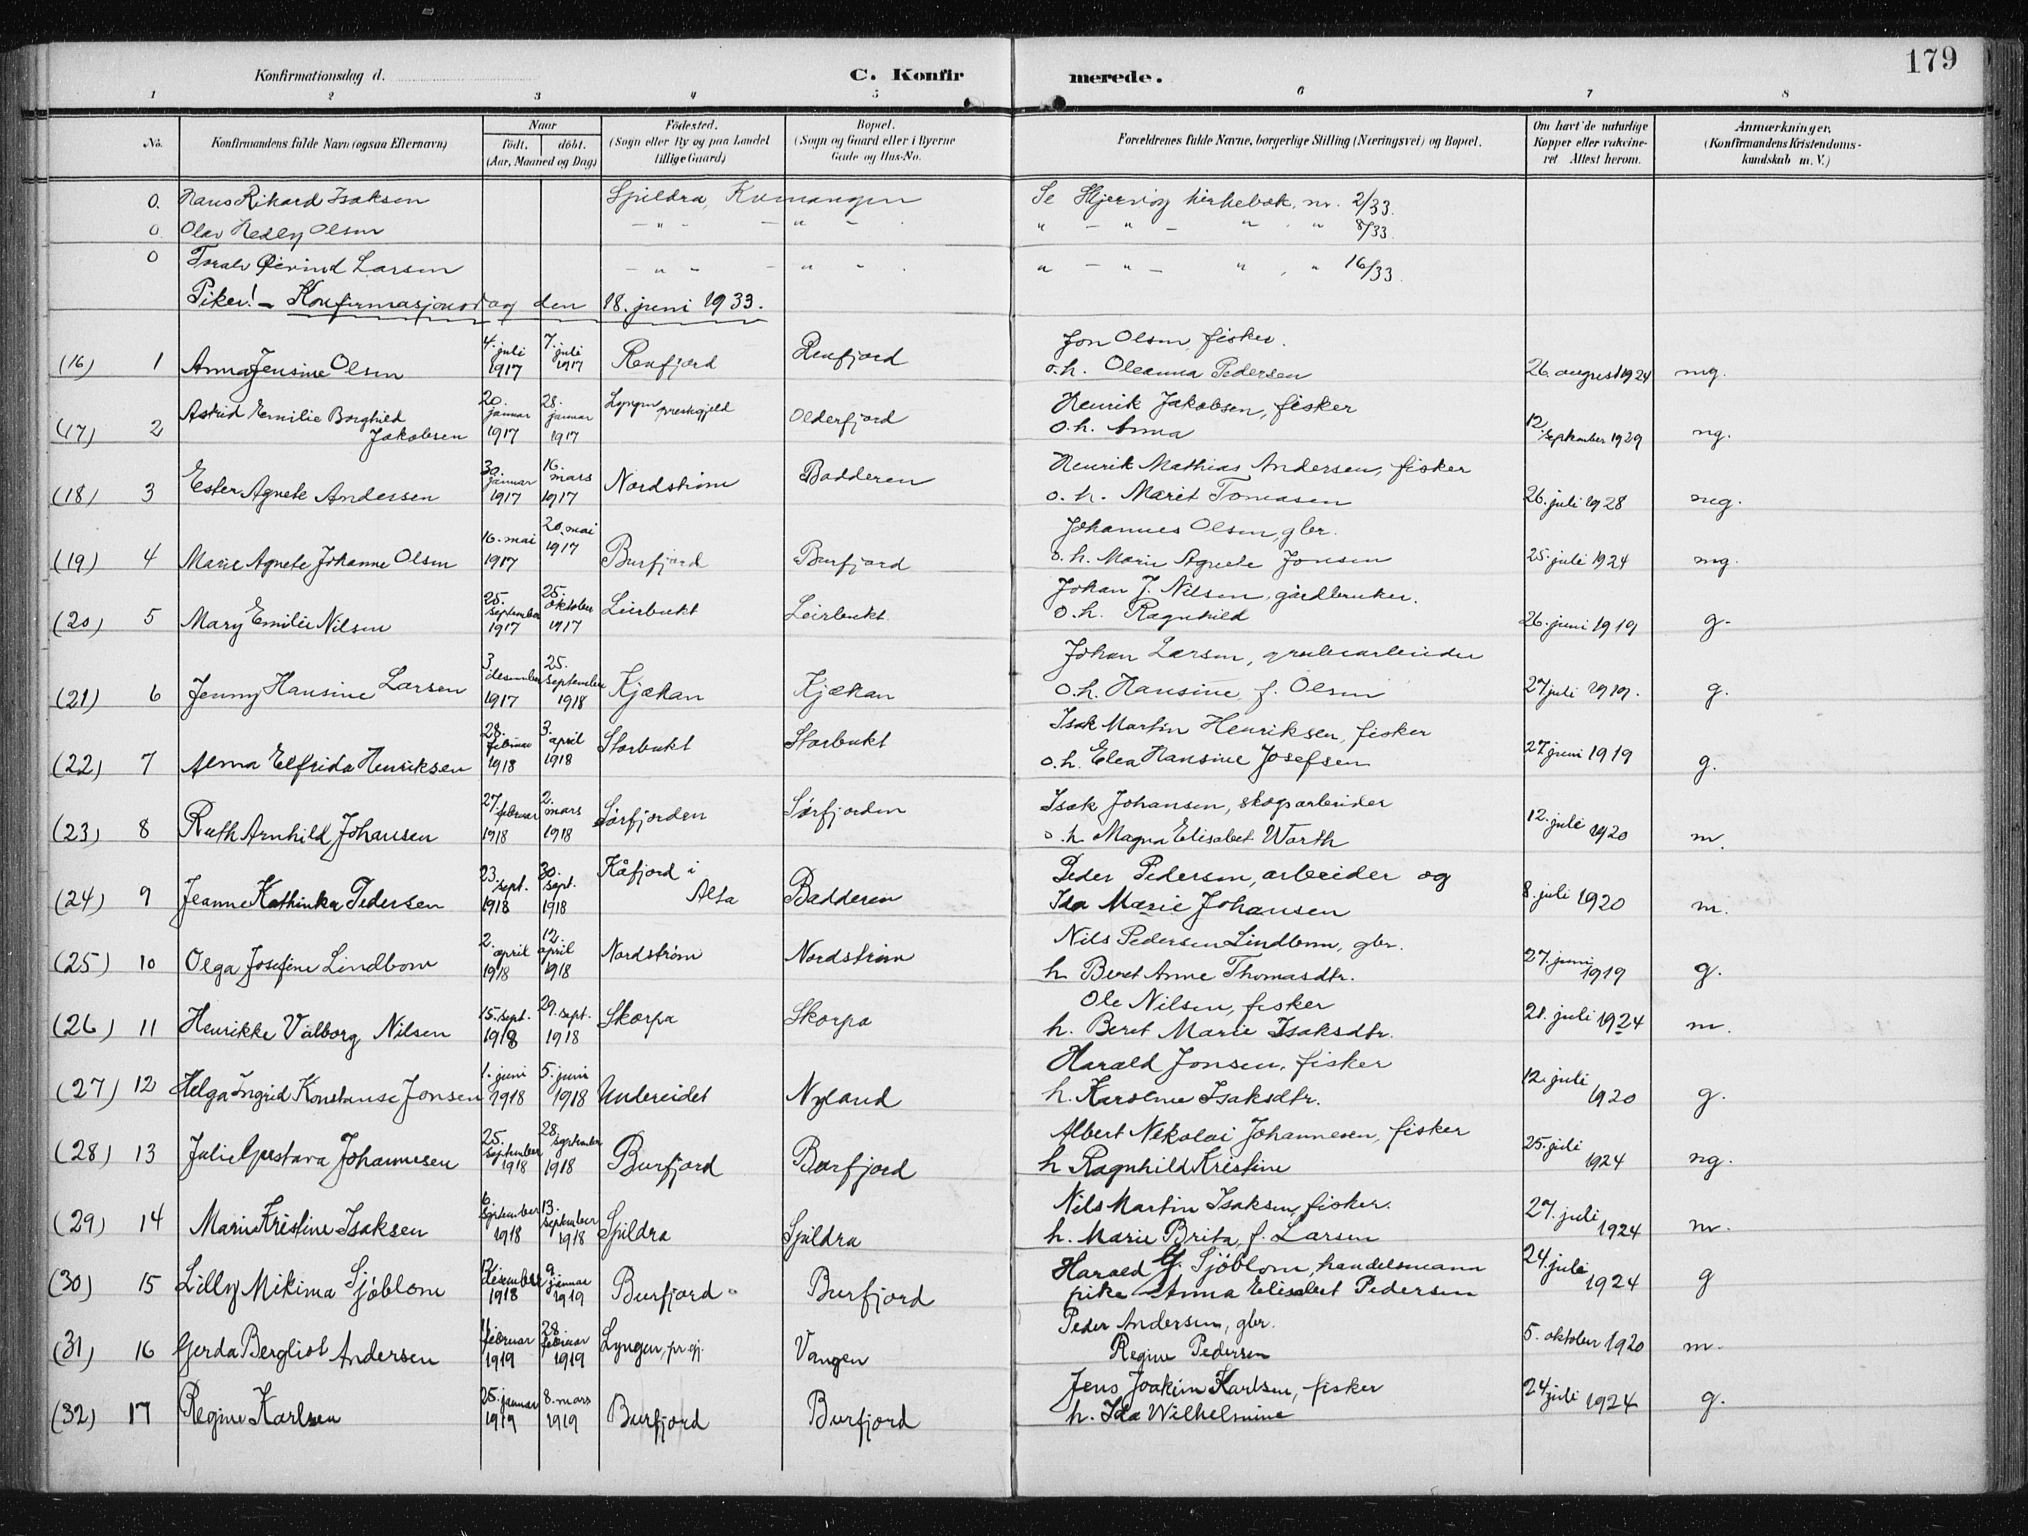 179
Konfirmationsdag d.
C. Konfirmerede.
1 2 3 4 5 6 7 8
No. Konfirmandens fulde Navn (ogsaa Efternavn) Naar født. døbt. (Aar, Maaned og Dag) Fødested. (Sogn eller By og paa Landet tillige Gaard) Bopæl. (Sogn og Gaard eller i Byerne Gade og Hus-No. Forældrenes fulde Navne, borgerlige Stilling (Næringsvei) og Bopæl. Om havt de naturlige Kopper eller vakcineret Attest herom. Anmærkninger. (Konfirmandens Kristendomskundskab m. V.)
0. Hans Rikard Isaksen Spildra, Kvænangen Se Skjervøy kirkebok, nr. 2/33.
0. Olav Hedly Olsen - " - - " - " - " - " . " 8/33.
0 Toralv Øivind Larsen - " - - " - " - " - " . " 16/33.
Piker! - Konfirmasjonsdag den 18. juni 1933.
(16) 1 Anna Jensine Olsen 4. juli 1917 7. juli 1917 Renfjord Renfjord Jon Olsen, fisker.
o.h. Oleanna Pedersen 26. august 1924 mg.
(17) 2 Astrid Emilie Borghild Jakobsen 20. januar 1917 28. januar 1917 Lyngen prestgjeld Olderfjord Henrik Jakobsen, fisker
o.h. Anna 12. september 1929 ng.
(18) 3 Ester Agnete Andersen 30. januar 1917 16. mars 1917 Nordstrøm Badderen Henrik Mathias Andersen, fisker
o. h. Marit Tomasen 26. juli 1928 mg.
(19) 4 Marie Agnete Johanne Olsen 16. mai 1917 20. mai 1917 Burfjord Burfjord Johannes Olsen, gbr.
o.h. Marie Agnete Jonsen 25. juli 1924 mg.
(20) 5 Mary Emilie Nilsen 25. september 1917 25. oktober 1917 Leirbukt Leirbukt Johan J. Nilsen, gårdbruker.
o.h. Ragnhild 26. juni 1919 g.
(21) 6 Jenny Hansine Larsen 3. desember 1917 25. september 1918 Kjækan Kjækan Johan Larsen, grubearbeider
o.h. Hansine f. Olsen 27 juli 1919. g.
(22) 7 Alma Elfrida Henriksen 28. februar 1918 3. april 1918 Storbukt Storbukt Isak Martin Henriksen, fisker
o.h. Elea Hansine Josefsen 27 juni 1919 g.
(23) 8 Ruth Arnhild Johansen 27. februar 1918 2. mars 1918 Sørfjorden Sørfjorden Isak Johansen, skogsarbeider
o.h Magna Elisabet Warth 12. juli 1920 m.
(24) 9 Jeanne Kathinka Pedersen 23. sept. 1918 30. sept. 1918 Kåfjord i Alta Badderen Peder Pedersen, arbeider og
Ida Marie Johansen 8. juli 1920 m.
(25) 10 Olga Josefine Lindbom 2. april 1918 12. april 1918 Nordstrøm Nordstrøm Nils Pedersen Lindbom, gbr.
h Beret Anne Thomasdtr. 27. juni 1919 g.
(26) 11 Henrikke Valborg Nilsen 15. sept. 1918 29. sept. 1918 Skorpa Skorpa Ole Nilsen, fisker
h. Beret Marie Isaksdtr. 21. juli 1924 m.
(27) 12 Helga Ingrid Konstanse Jonsen 1. juni 1918 5. juni 1918 Undereidet Nyland Harald Jonsen, fisker
h. Karoline Isaksdtr. 12. juli 1920 g.
(28) 13 Julie Gustava Johannesen 25. september 1918 28. september 1918 Burfjord Burfjord Albert Nikolai Johannesen, fisker
h Ragnhild Kristine 25. juli 1924 ng.
(29) 14 Marie Kristine Isaksen 6. september 1918 13. september 1918 Spildra Spildra Nils Martin Isaksen, fisker.
h. Marie Brita, f. Larsen 27. juli 1924 m.
(30) 15 Lilly Mikima Sjøblom desember 1918 9. januar 1919 Burfjord Burfjord Harald G. Sjøblom, handelsmann
pike Anna Elisabet Pedersen 24. juli 1924 g
(31) 16 Gerda Bergliot Andersen 11. februar 1919 28. februar 1919 Lyngen, pr.gj. Vangen Peder Andersen, gbr.
Regine Pedersen 5. oktober 1920 m.
(32) 17 Regine Karlsen 25. januar 1919 8. mars 1919 Burfjord Burfjord Jens Joakim Karlsen, fisker
h. Ida Wilhelmine 24 juli 1924 g.